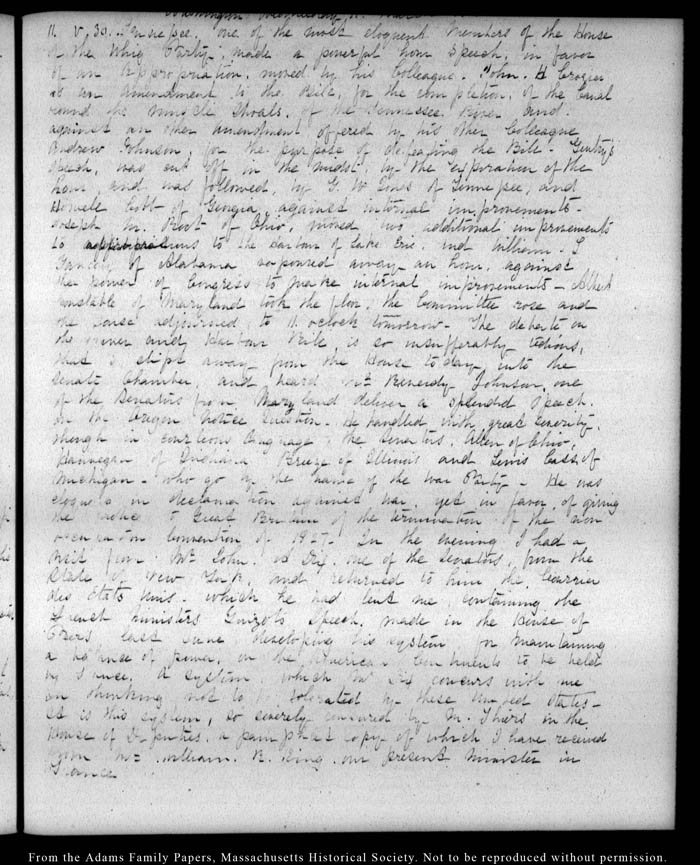 Washington Wednesday
II. V. 30. Tennessee, one of the most eloquent Members of the House
of the Whig Party, made a powerful hour speech, in favor
of an Appropriation, moved by his Colleague. John. H Crozier
as an amendment to the Bill, for the completion, of the Canal
round the Muscle Shoals, of the Tennessee River and
against an other amendment offered by his other Colleague
Andrew Johnson, for the purpose of defeating the Bill - Gentry's
speech, was cut off in the midst, by the expiration of the
hour, and was followed, by G W Jones of Tennessee, and
Howell Cobb of Georgia, against internal improvements -
Joseph M. Root of Ohio, moved two additional improvements
to appropriations to the Harbour of Lake Erie. and William. L
Yancey of Alabama vapoured away an hour, against
the power of Congress to make internal improvements - Albert
Constable of Maryland took the floor, the Committee rose and
the House adjourned, to 11. oclock tomorrow - The debate on
the River and Harbour Bill, is so insufferably tedious,
that I slipt away from the House to day into the
Senate Chamber, and heard Mr Reverdy Johnson, one
of the Senators from Maryland deliver a splendid Speech.
on the Oregon notice question. He handled with great severity,
though in courteous language, the Senators, Allen of Ohio,
Hannegan of Indiana Breeze of Illinois and Lewis Cass, of
Michigan - who go by the name of the War Party - He was
eloquent in declamation against war, yet in favor, of giving
the notice to Great Britain of the termination of the non
occupation Convention of 1827. In the evening I had a
visit from Mr John. A Dix, one of the Senators from the
State of New York, and returned to him the, Courrier
des Etats Unis. which he had lent me, containing the
French Ministers Guizots Speech, made in the House of
Peers last June developing his system for maintaining
a balance of power, on the American Continents to be held
by France. A system, which Mr Dix concurs with me
in thinking not to be tolerated by these United States -
It is this system, so severely censured by M. Thiers in the
House of Deputies, a pamphlet copy of which I have received
from Mr William. R. King our present Minister in
France
From the Adams Family Papers, Massachusetts Historical Society. Not to be reproduced without permission.